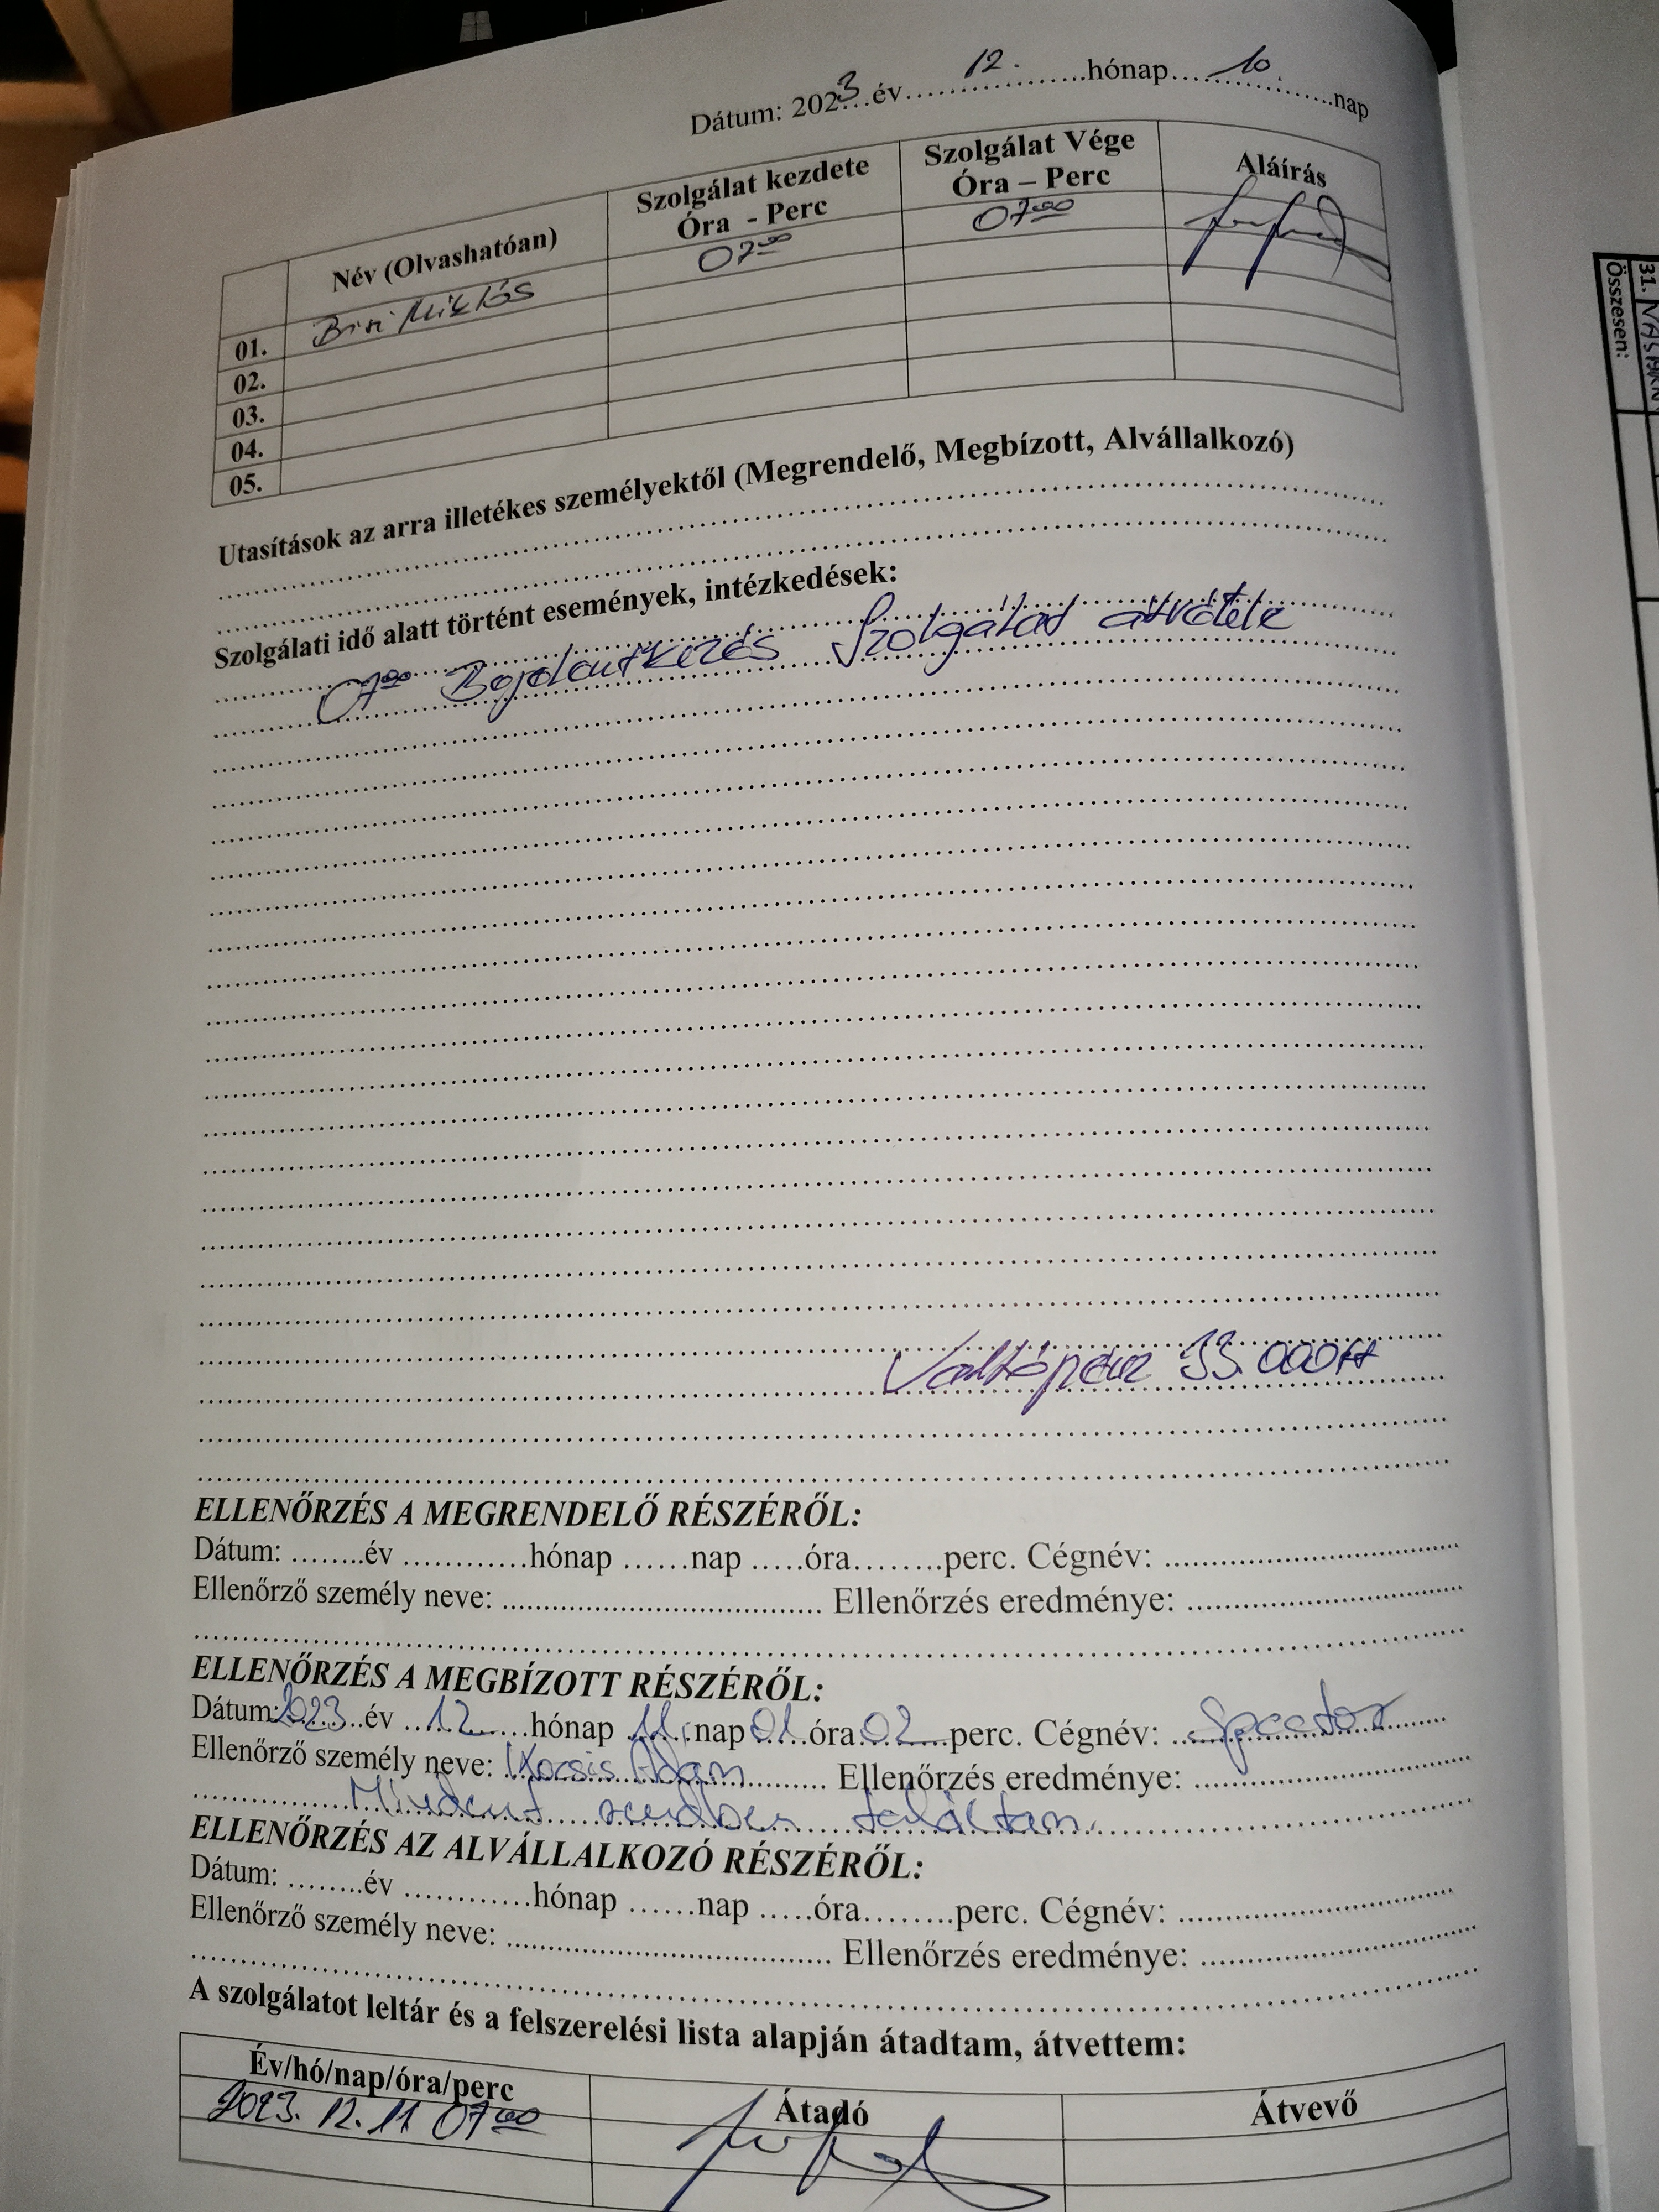 Dátum: 2023 év 12. hónap 10. nap
Név (Olvashatóan) Szolgálat kezdete Óra - Perc Szolgálat Vége Óra – Perc Aláírás
01. Miklós 07⁰⁰ 07⁰⁰
02.
03.
04.
05.
Utasítások az arra illetékes személyektől (Megrendelő, Megbízott, Alvállalkozó)
Szolgálati idő alatt történt események, intézkedések:
07⁰⁰ Bejelentkezés Szolgálat átvétele
Váltópénz 33.000 Ft
ELLENŐRZÉS A MEGRENDELŐ RÉSZÉRŐL:
Dátum: ........év ............hónap ......nap .....óra........perc. Cégnév: ..............................
Ellenőrző személy neve: ..................................... Ellenőrzés eredménye: ..............................
ELLENŐRZÉS A MEGBÍZOTT RÉSZÉRŐL:
Dátum: 2023 év 12 hónap 11. nap 01 óra 02 perc. Cégnév: Spector
Ellenőrző személy neve: Kocsis Ádám Ellenőrzés eredménye: ..............................
Mindent rendben találtam.
ELLENŐRZÉS AZ ALVÁLLALKOZÓ RÉSZÉRŐL:
Dátum: ........év ............hónap ......nap .....óra........perc. Cégnév: ..............................
Ellenőrző személy neve: ..................................... Ellenőrzés eredménye: ..............................
A szolgálatot leltár és a felszerelési lista alapján átadtam, átvettem:
Év/hó/nap/óra/perc Átadó Átvevő
2023. 12. 11 07⁰⁰
31.
Összesen: